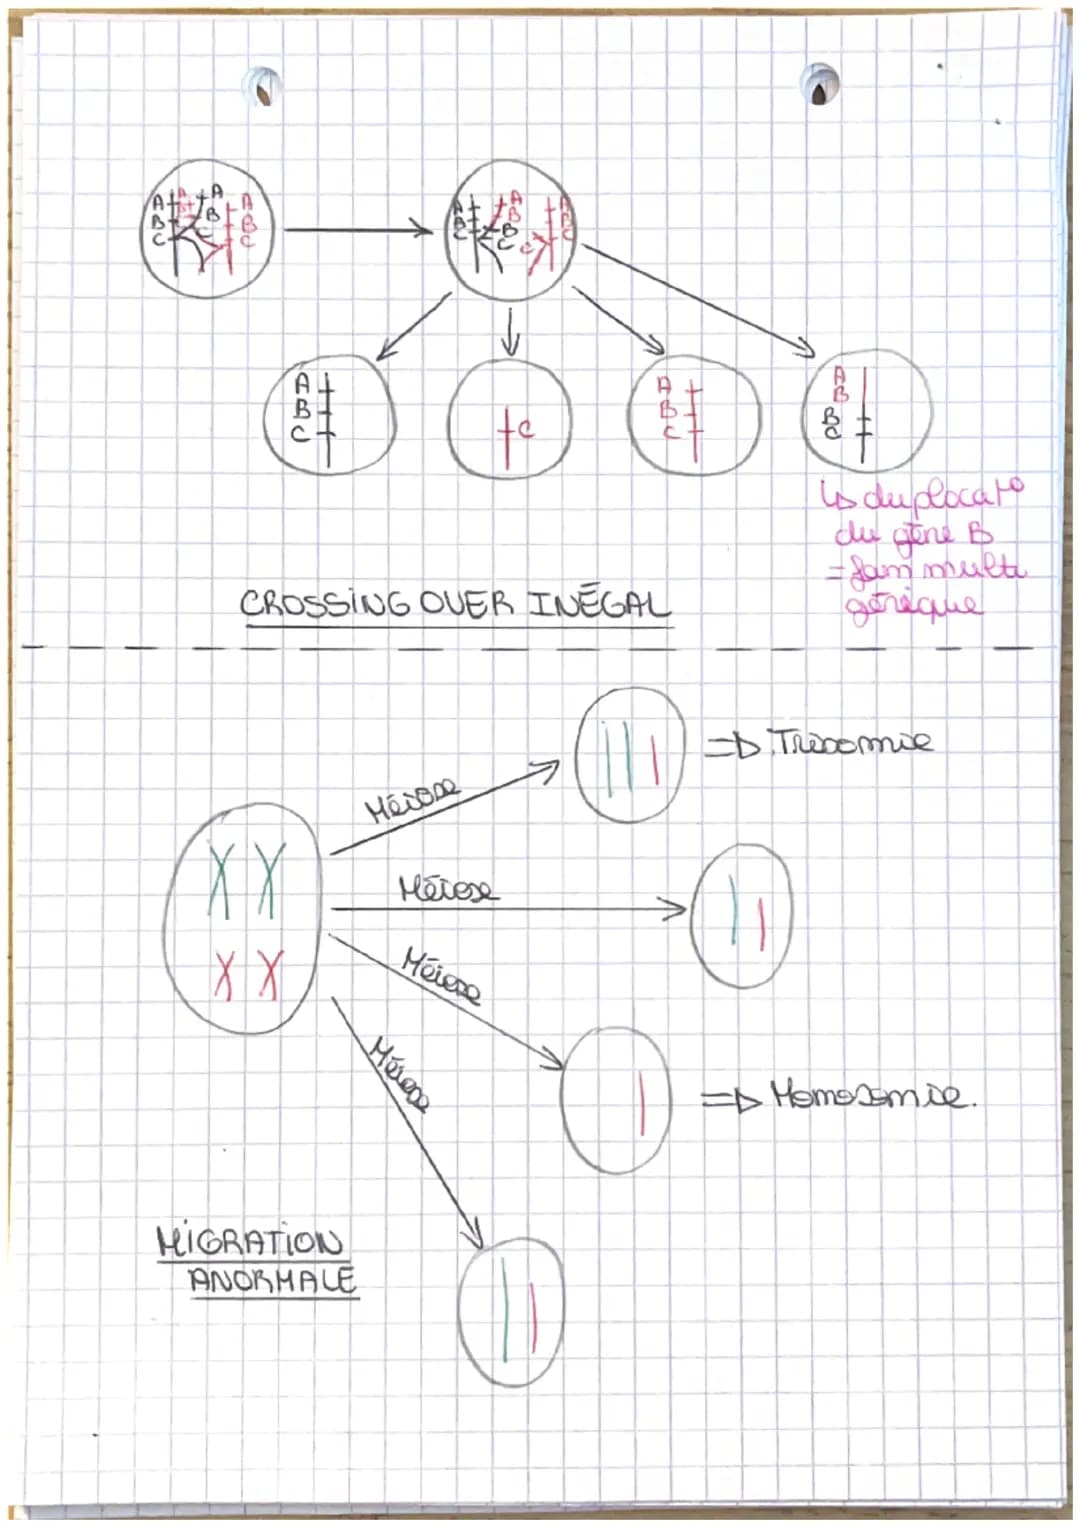 A A A A
B B B B
C C C
A A A
B B B B
C C C C
A
B
C
C
A
B
C
A
B
B
C
↳ duplocat°
du gène B
= fam multi
génique
CROSSING OVER INÉGAL
Méiose
=> Trisomie
Méiose
Méiose
Méiose
=> Monosomie.
MIGRATION
ANORMALE